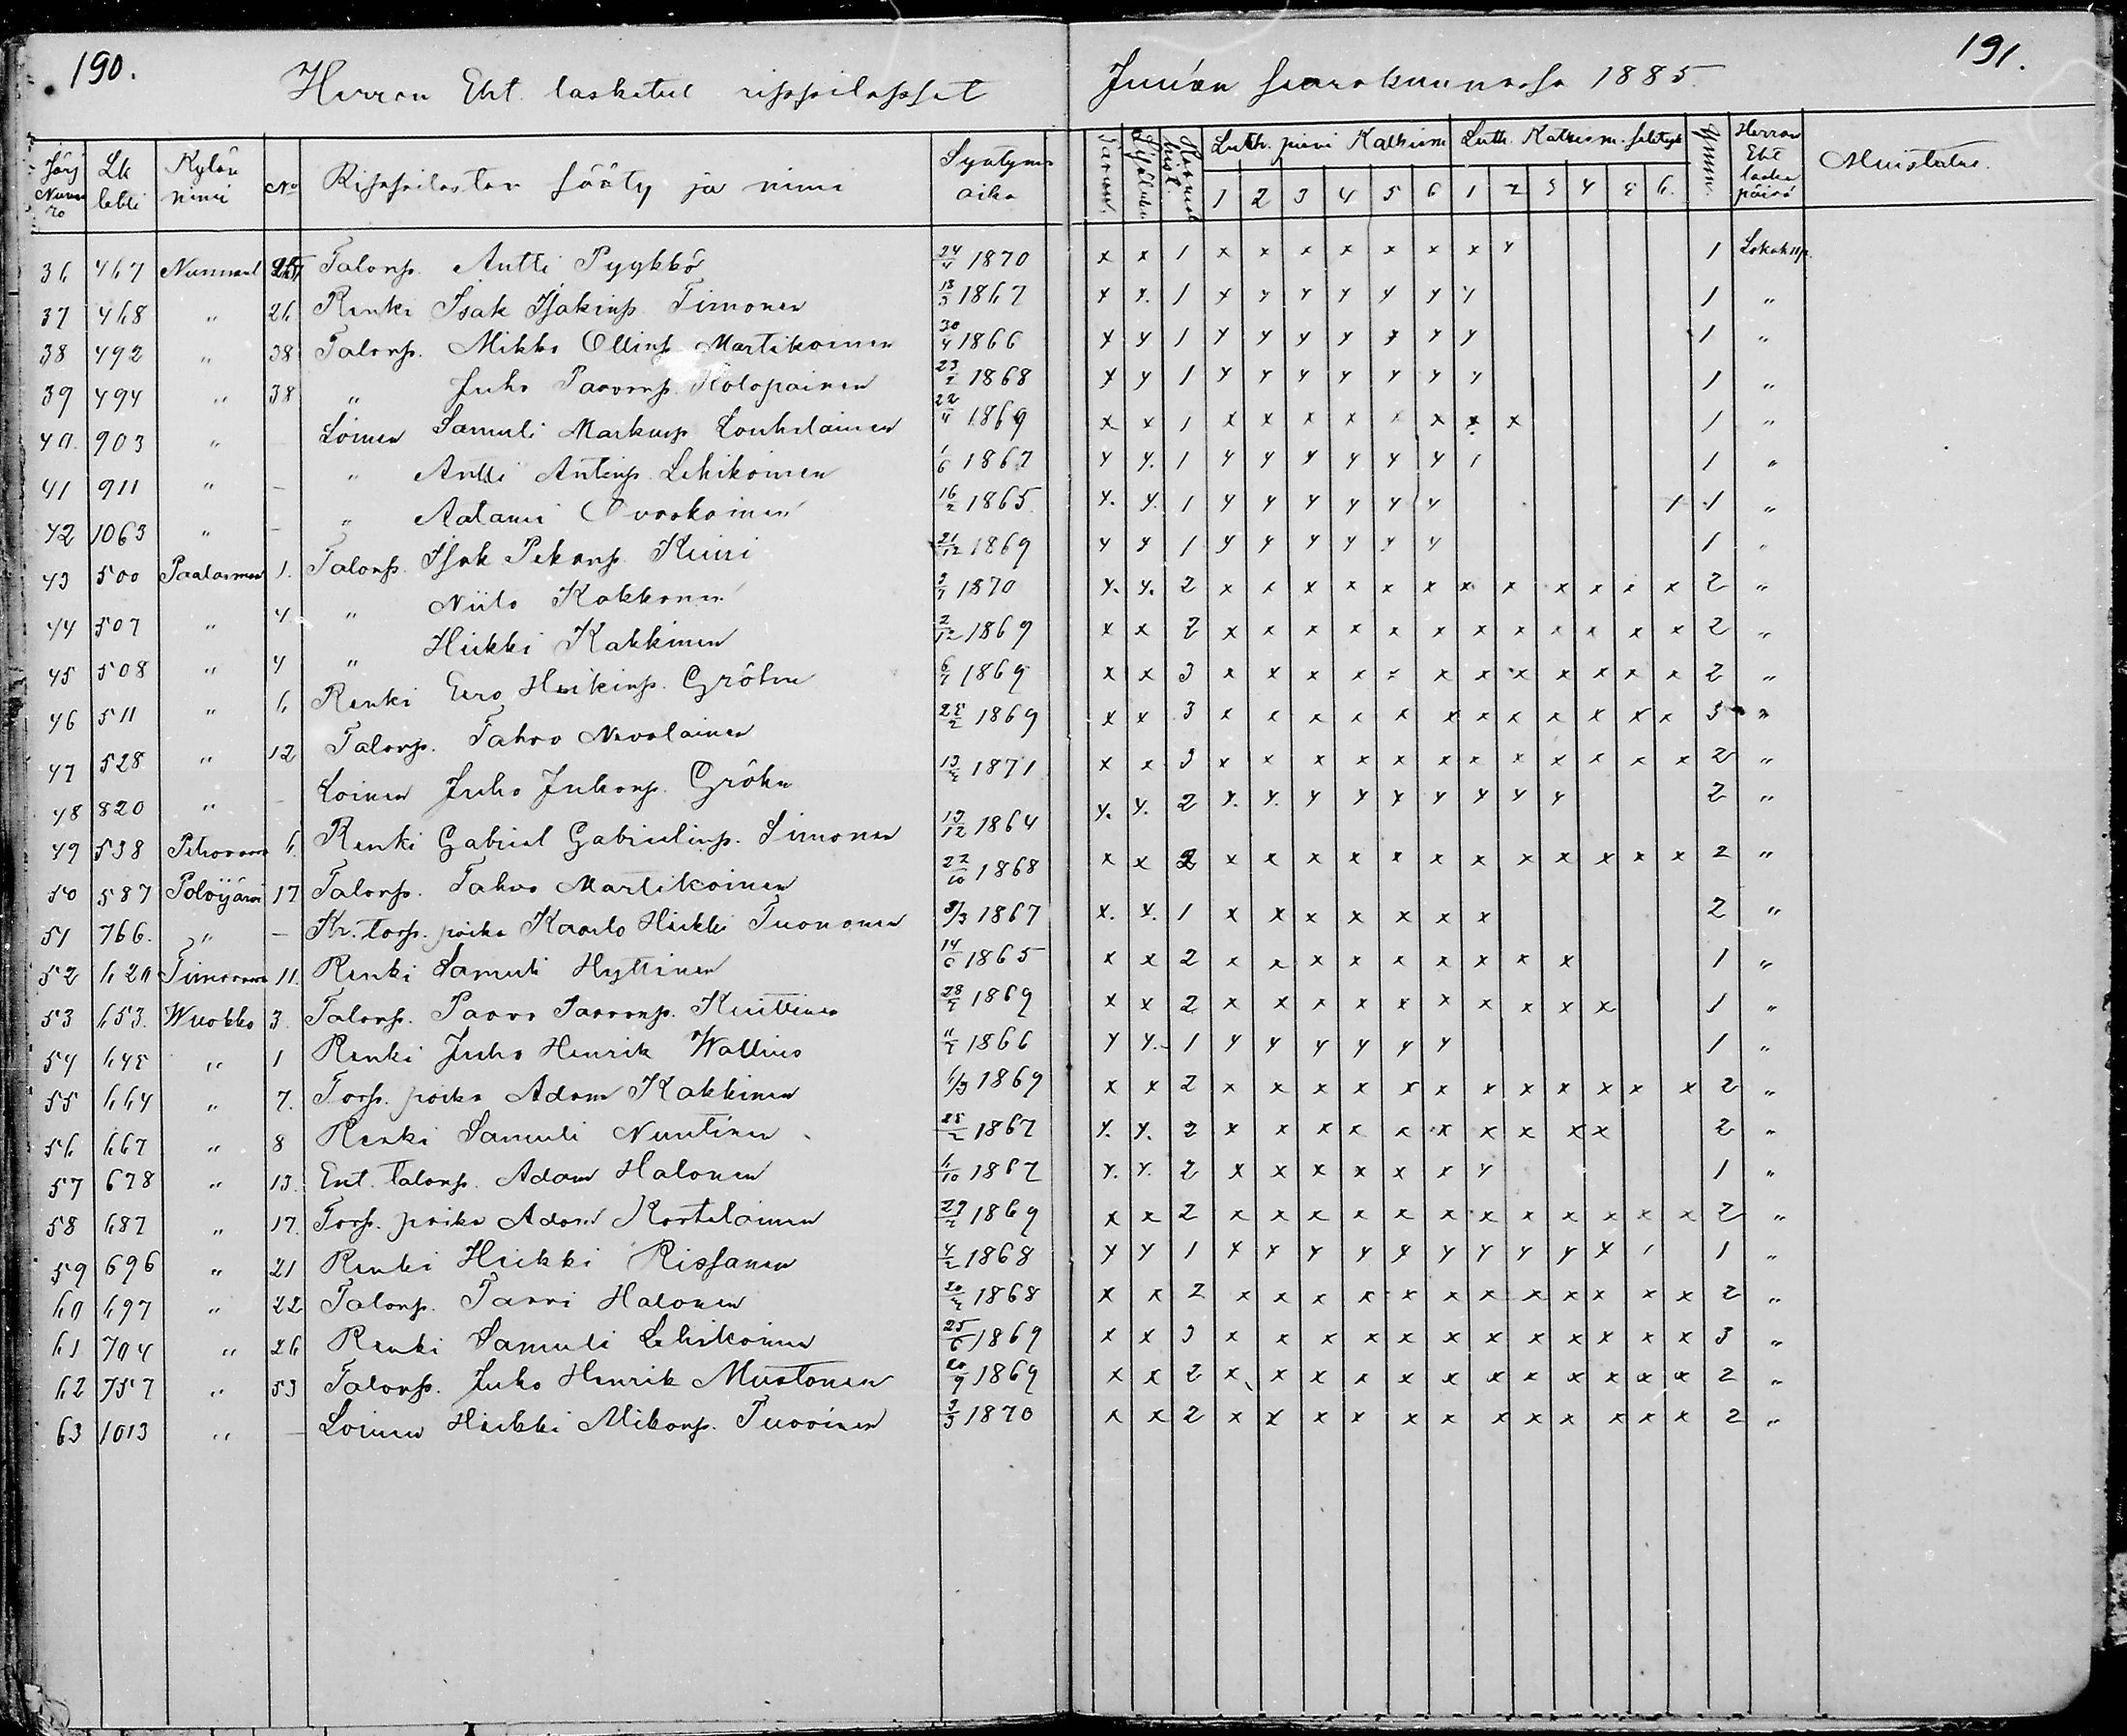 190.
191.
Herran Eht. lasketut rippilapset Juuan seurakunnassa 1885.
Järj Numero | Lk lehti | Kylän nimi | No | Rippilasten sääty ja nimi | Syntymä aika | Luth. pieni Katkism | Luth. Katkism. selitys | Herran Eht lasku päivä | Muistutus.
1 2 3 4 5 6 1 2 3 4 5 6.
36 467 Talonp. Antti Pyykkö 24/4 1870 x x 1 x x x x x x x y 1
37 468 " 26 Renki Isak Isakinp. Timonen 13/3 1867 y y. 1 y y y y y y y 1 "
38 492 " 38 Talonp. Mikko Ollinp. Martikainen 30/4 1866 y y 1 y y y y y y y 1 "
39 494 " 38 " Juho Paavonp. Holopainen 23/2 1868 y y 1 y y y y y y y 1 "
40. 903 " Loinen Samuli Markunp. Louhelainen 22/4 1869 x x 1 x x x x x x x x 1 "
41 911 " - " Antti Antinp. Lehikoinen 1/6 1867 y y. 1 y y y y y y 1 1 "
42 1063 " - " Aatami Ovaskainen 16/2 1865 y. y. 1 y y y y y y 1 1 "
43 500 1. Talonp. Isak Pekanp. 21/12 1869 y y 1 y y y y y y 1 "
44 507 " 4 " Niilo Kakkonen 1870 y. y. 2 x x x x x x x x x x x x 2 "
45 508 " 4 " Heikki Kakkinen 2/12 1869 x x 2 x x x x x x x x x x x x 2 "
46 511 " 6 Renki Eero Heikinp. Gröhn 1869 x x 3 x x x x x x x x x x x x 2 "
47 528 " 12 Talonp. Tahvo Nevalainen 1869 x x 3 x x x x x x x x x x x x 3 "
48 820 " - Loinen Juho Juhonp. Gröhn 1871 x x 3 x x x x x x x x x x x x 2 "
49 538 6. Renki Gabriel Gabrielinp. Simonen 13/12 1864 y. y. 2 y. y. y y y y y y y 2 "
50 587 Polvijärvi 17 Talonp. Tahvo Martikainen 22/10 1868 x x 2 x x x x x x x x x x x x 2 "
51 766. " - Kr. torp. poika Kaarlo Heikki Tuononen 8/3 1867 x. x. 1 x x x x x x x 2 "
52 620 11. Renki Samuli Hyttinen 14/6 1865 x x 2 x x x x x x x x x 1 "
53 653. Wuokko 3. Talonp. Paavo Paavonp. Kuittinen 1869 x x 2 x x x x x x x x x x 1 "
54 645 " 1 Renki Juho Henrik Wallius 1866 y y. 1 y y y y y y 1 "
55 664 " 7. Torp. poika Adam Kakkinen 6/3 1869 x x 2 x x x x x x x x x x x x 2 "
56 667 " 8 Renki Samuli Nuutinen 1867 y. y. 2 x x x x x x x x x x 2 "
57 678 " 13. Ent. talonp. Adam Halonen 6/10 1867 y. y. 2 x x x x x x y 1 "
58 687 " 17. Torp. poika Adam Kortelainen 1869 x x 2 x x x x x x x x x x x x 2 "
59 696 " 21 Renki Heikki Rissanen 4/2 1868 y y 1 y y y y y y y y y y 1 1 "
60 697 " 22 Talonp. Paavi Halonen 1868 x x 2 x x x x x x x x x x x x 2 "
61 704 " 26 Renki Samuli Lehikoinen 25/6 1869 x x 3 x x x x x x x x x x x x 3 "
62 757 " 53 Talonp. Juho Henrik Mustonen 20/9 1869 x x 2 x x x x x x x x x x x x 2 "
63 1013 " - Loinen Heikki Mikonp. Tuovinen 1870 x x 2 x x x x x x x x x x x x 2 "